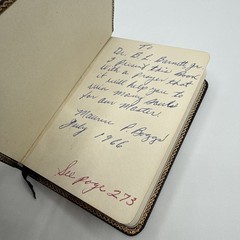 To
Dr. B L Bennett Jr
I present this Book
with a prayer that
it will help you to
win Many Souls
for our Master.
Maurice P Boggs
July 1966
See page 273